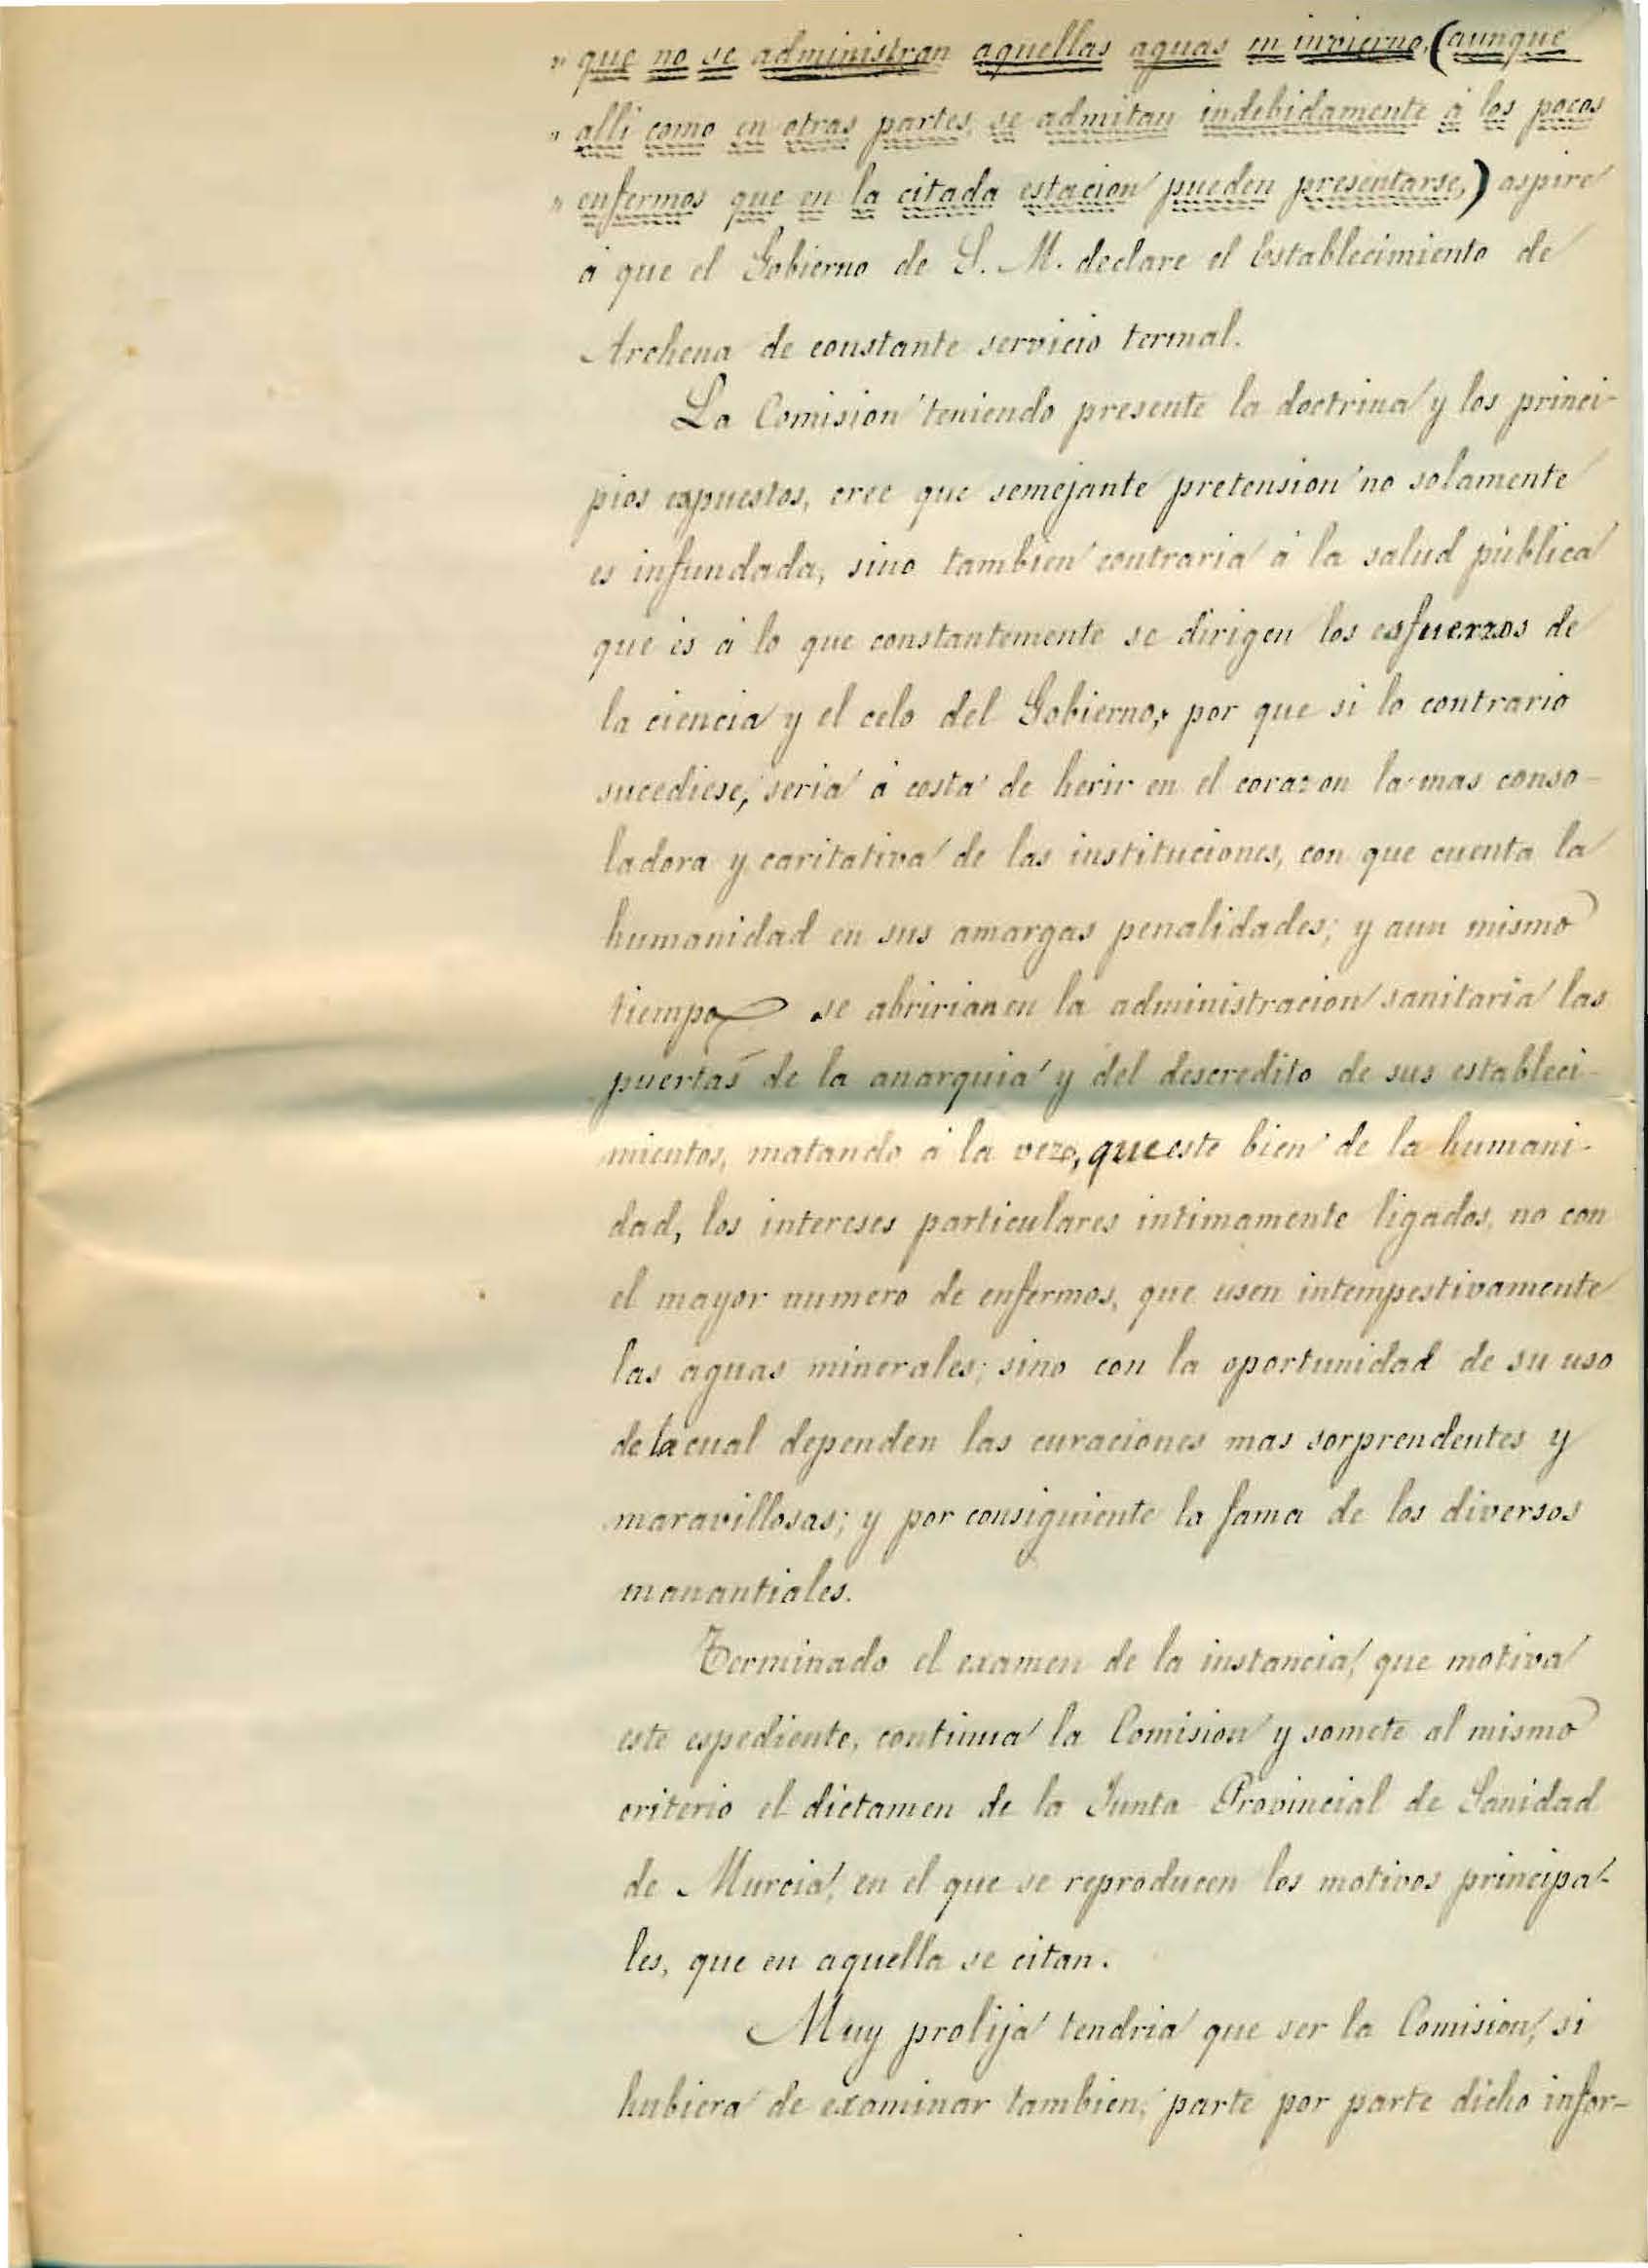 " que no se administran aquellas aguas en invierno, (aunque
" alli como en otras partes, se admitan indebidamente á los pocos
" enfermos que en la citada estacion pueden presentarse,) aspire
á que el Gobierno de S. M. declare el Establecimiento de
Archena de constante servicio termal.
La Comision teniendo presente la doctrina y los princi-
pios espuestos, cree que semejante pretension no solamente
es infundada, sino tambien contraria á la salud pública
que és á lo que constantemente se dirigen los esfuerzos de
la ciencia y el celo del Gobierno, por que si lo contrario
sucediese, seria á costa de herir en el corazon la mas conso-
ladora y caritativa de las instituciones, con que cuenta la
humanidad en sus amargas penalidades; y aun mismo
tiempo se abririan en la administracion sanitaria las
puertas de la anarquia y del descredito de sus estableci-
mientos, matando á la vez, que este bien de la humani-
dad, los intereses particulares intimamente ligados, no con
el mayor numero de enfermos, que usen intempestivamente
las aguas minerales; sino con la oportunidad de su uso
de la cual dependen las curaciones mas sorprendentes y
maravillosas; y por consiguiente la fama de los diversos
manantiales.
Terminado el examen de la instancia, que motiva
este espediente, continua la Comision y somete al mismo
criterio el dictamen de la Junta Provincial de Sanidad
de Murcia, en el que se reproducen los motivos principa-
les, que en aquella se citan.
Muy prolija tendria que ser la Comision, si
hubiera de examinar tambien, parte por parte dicho infor-